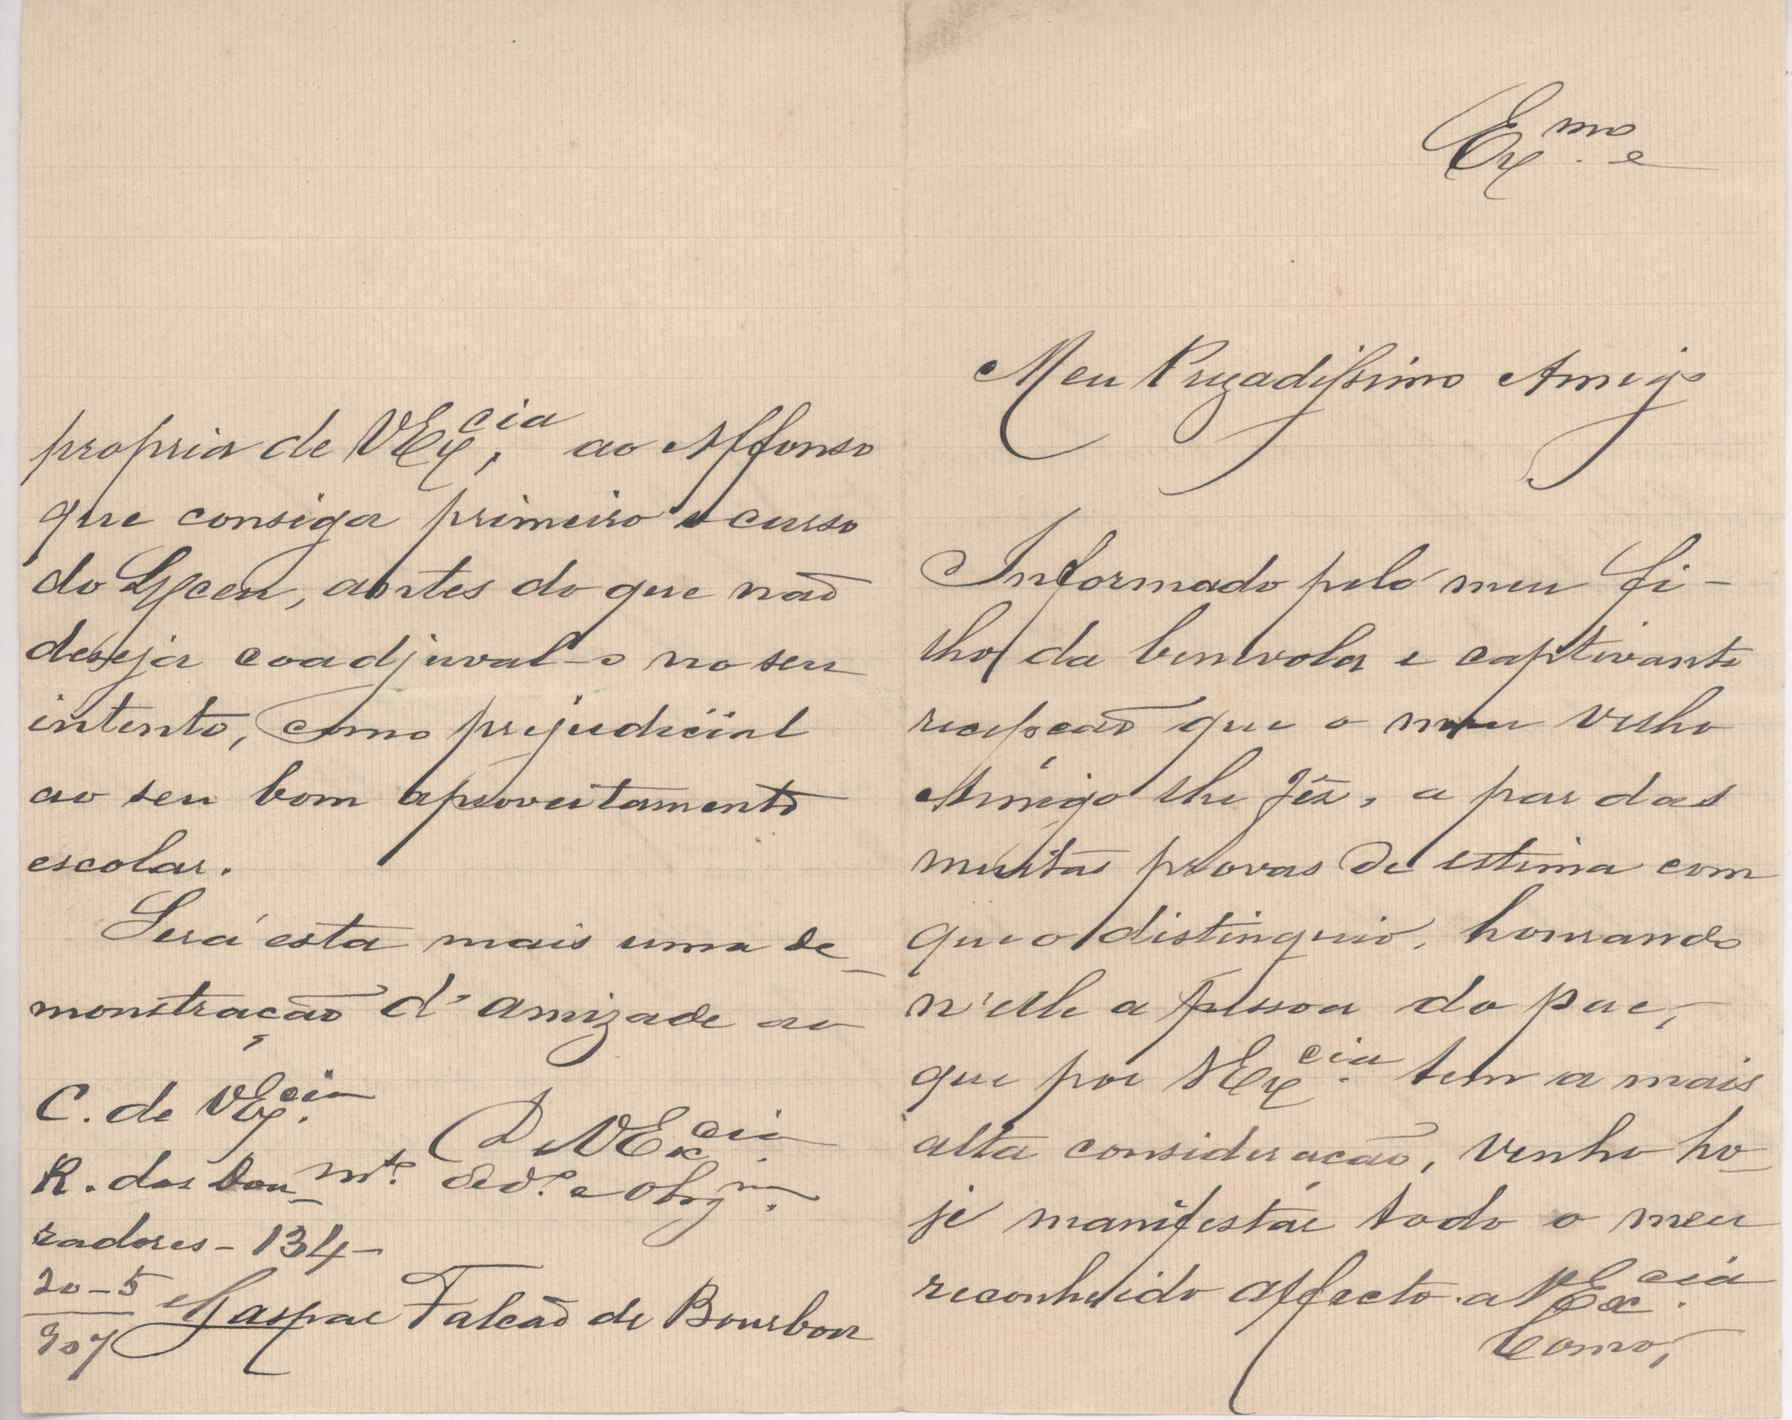 Ex.mo e
Meu Prezadissimo Amigo
Informado pelo meu fi-
lho da benevola e captivante
recepção que o meu velho
Amigo lhe fez, a par das
muitas provas de estima com
que o distinguio, honrando
n'elle a pessoa do pae,
que por VEx.cia tem a mais
alta consideração, venho ho-
je manifestar todo o meu
reconhecido affecto a VEx.cia
Como,
propria de VEx.cia, ao Affonso
que consiga primeiro o curso
do Lyceu, antes do que não
deseja coadjuval-o no seu
intento, como prejudicial
ao seu bom aproveitamento
escolar.
Será esta mais uma de-
monstração d'amizade ao
De VEx.cia
m.to ded.o e obrg.mo
Gaspar Falcão de Bourbon
C. de VEx.cia
R. dos Dou-
radores - 134 -
20-5
907